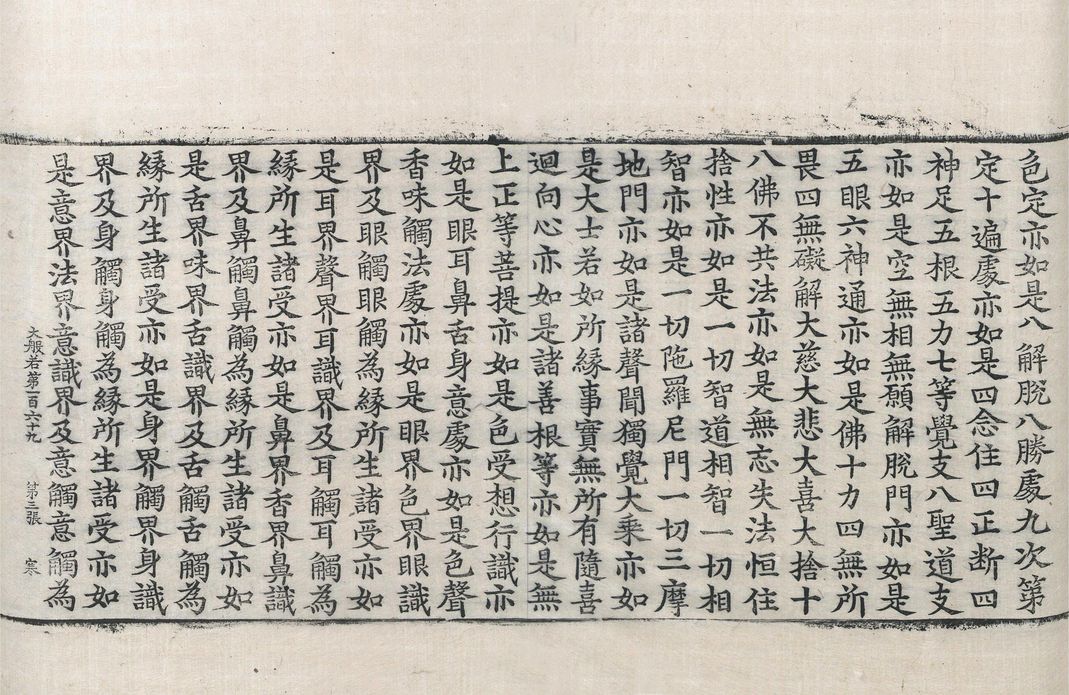 色定亦如是八解脫八勝處九次第
定十遍處亦如是四念住四正断四
神足五根五力七等覺支八聖道支
亦如是空無相無願解脫門亦如是
五眼六神通亦如是佛十力四無所
畏四無礙解大慈大悲大喜大捨十
八佛不共法亦如是無忘失法恒住
捨性亦如是一切智道相智一切相
智亦如是一切陁羅尼門一切三摩
地門亦如是諸聲聞獨覺大乘亦如
是大士若如所緣事實無所有隨喜
迴向心亦如是諸善根等亦如是無
上正等菩提亦如是色受想行識亦
如是眼耳鼻舌身意處亦如是色聲
香味觸法處亦如是眼界色界眼識
界及眼觸眼觸為緣所生諸受亦如
是耳界聲界耳識界及耳觸耳觸為
緣所生諸受亦如是鼻界香界鼻識
界及鼻觸鼻觸為緣所生諸受亦如
是舌界味界舌識界及舌觸舌觸為
緣所生諸受亦如是身界觸界身識
界及身觸身觸為緣所生諸受亦如
是意界法界意識界及意觸意觸為
大般若第一百六十九 第三張 寒